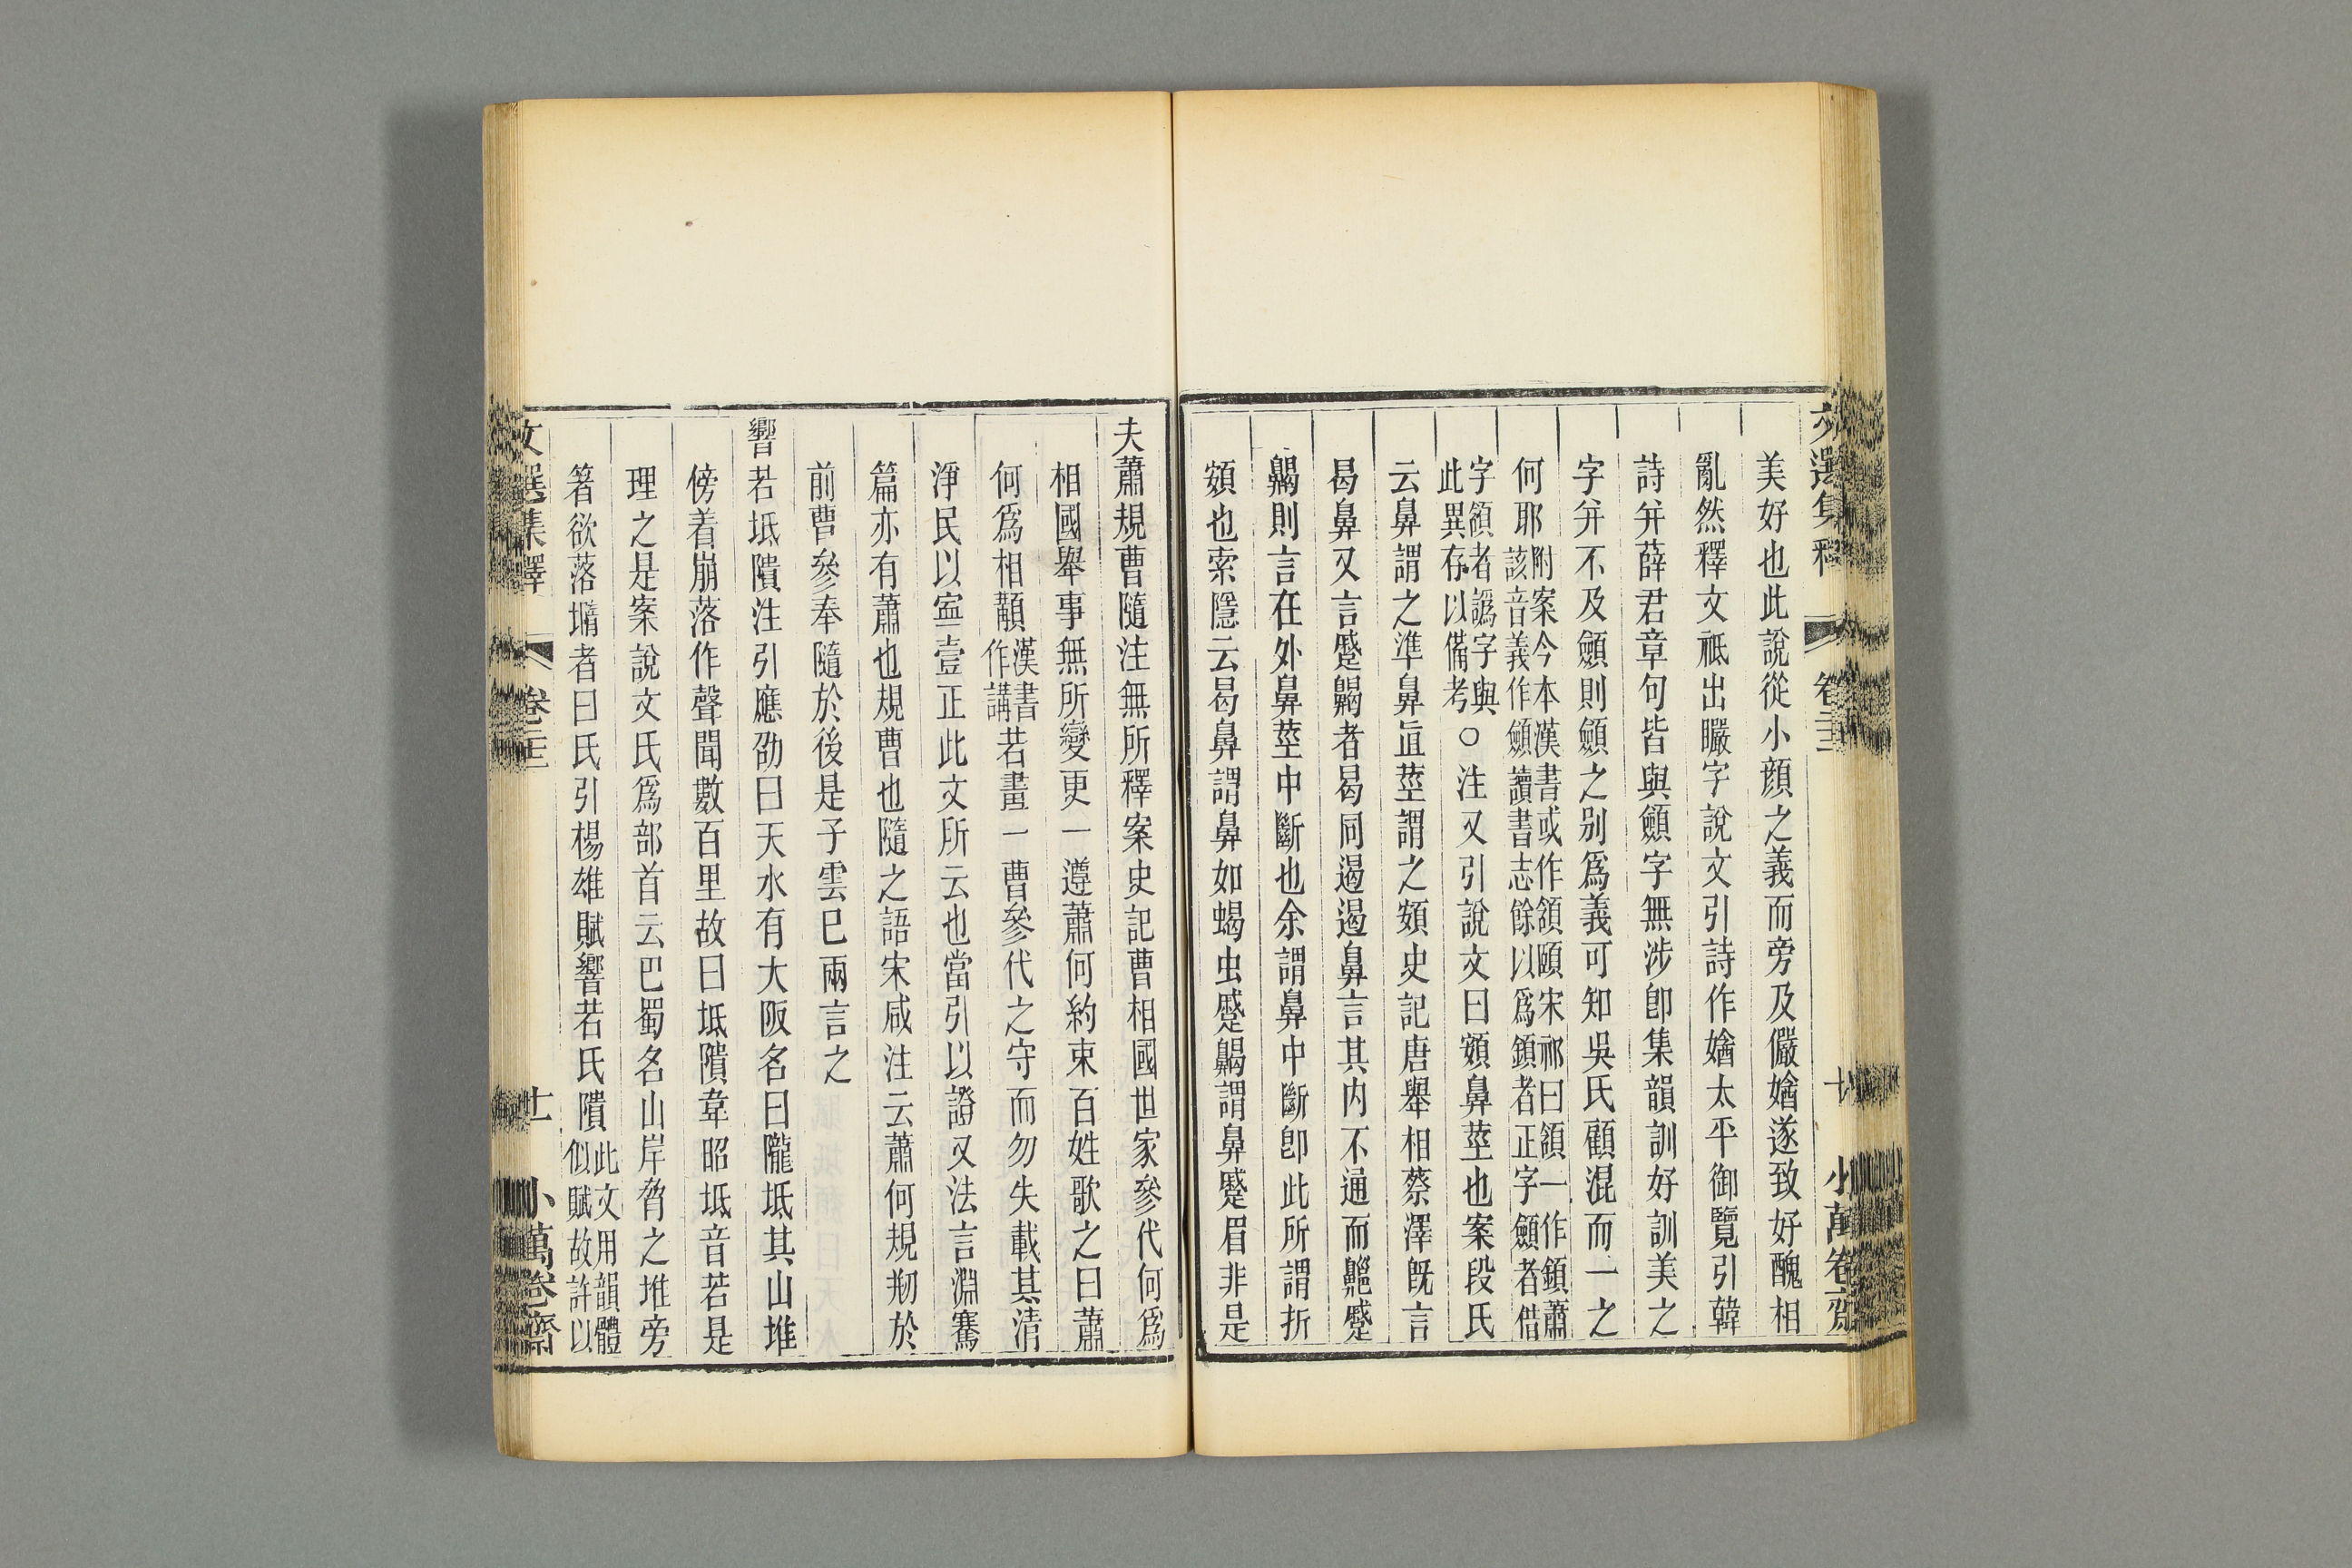 文選集釋 卷二十三 十 小萬卷齋
美好也此說從小顏之義而旁及儼媕遂致好醜相
亂然釋文祗出曮字說文引詩作媕太平御覽引韓
詩并薛君章句皆與顩字無涉卽集韻訓好訓美之
字并不及顩則顩之别爲義可知吳氏顧混而一之
何耶附案今本漢書或作頷頤宋祁曰頷一作鎖蕭
該音義作顩讀書志餘以爲鎖者正字顩者借
字頷者譌字與
此異存以備考○注又引說文曰頞鼻莖也案段氏
云鼻謂之準鼻直莖謂之頞史記唐舉相蔡澤旣言
曷鼻又言蹙齃者曷同遏遏鼻言其内不通而齆蹙
齃則言在外鼻莖中斷也余謂鼻中斷卽此所謂折
頞也索隱云曷鼻謂鼻如蝎虫蹙齃謂鼻蹙眉非是
夫蕭規曹隨注無所釋案史記曹相國世家參代何爲
相國舉事無所變更一遵蕭何約束百姓歌之曰蕭
何爲相顜漢書
作講若畫一曹參代之守而勿失載其清
淨民以寍壹正此文所云也當引以證又法言淵騫
篇亦有蕭也規曹也隨之語宋咸注云蕭何規剏於
前曹參奉隨於後是子雲已兩言之
響若坻隤注引應劭曰天水有大阪名曰隴坻其山堆
傍着崩落作聲聞數百里故曰坻隤韋昭坻音若是
理之是案說文氏爲部首云巴蜀名山岸脅之堆旁
箸欲落墮者曰氏引楊雄賦響若氏隤此文用韻體
似賦故許以
文選集釋 卷二十三 十一 小萬卷齋